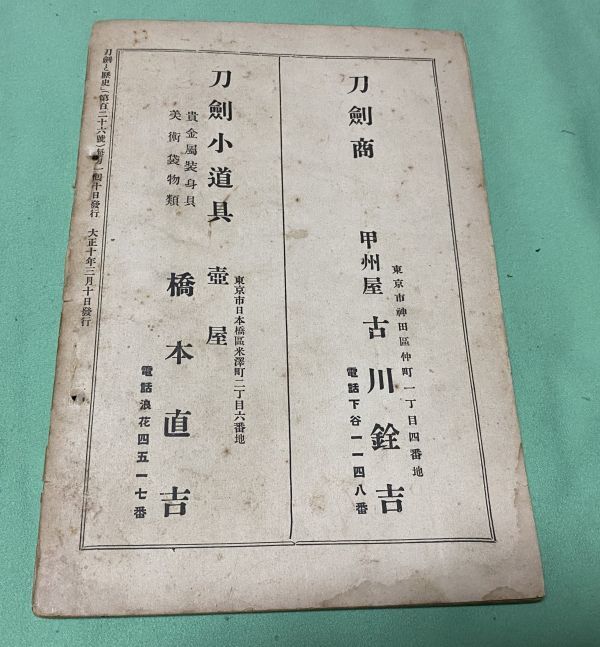 刀劍商
東京市神田區仲町一丁目四番地
甲州屋 古川銓吉
電話下谷一一四八番
刀劍小道具
貴金屬裝身具
美術袋物類
東京市日本橋區米澤町二丁目六番地
壺屋
橋本直吉
電話浪花四五一七番
刀劍と歷史(第百二十六號)每月一回十日發行 大正十年三月十日發行